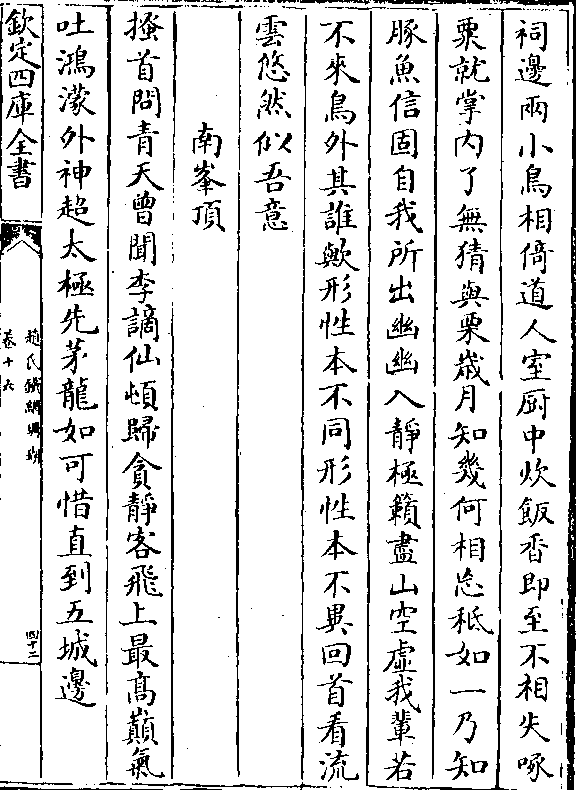 祠邊兩小鳥相倚道人室厨中炊飯香即至不相失啄
粟就掌内了無猜與栗歳月知幾何相忘秪如一乃知
豚魚信固自我所出幽幽入靜極籟盡山空虛我輩若
不來鳥外其誰歟形性本不同形性本不異回首看流
雲悠然似吾意
南峯頂
搔首問青天曾聞李謫仙頓歸貪靜客飛上最髙巔氣
吐鴻濛外神超太極先茅龍如可惜直到五城邊
欽定四庫全書
趙氏鐵網珊瑚
卷十六
四十二